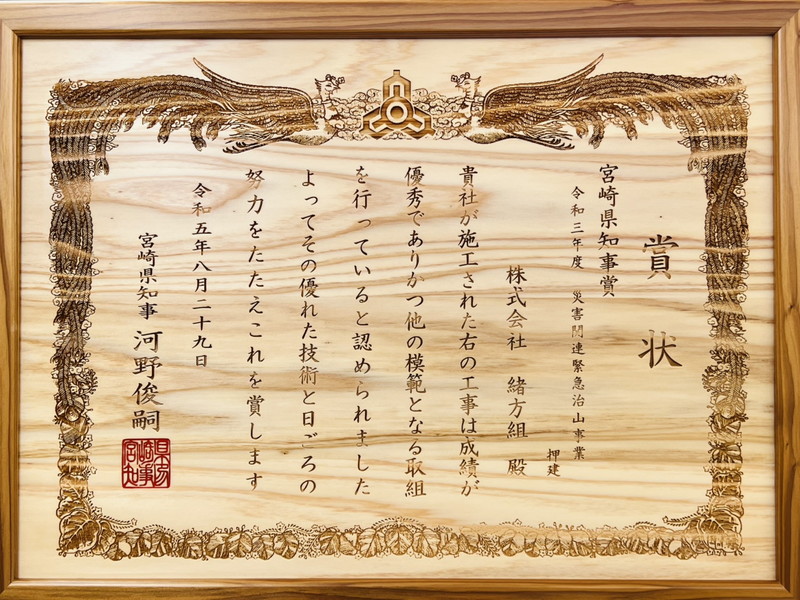 賞状
宮崎県知事賞
令和三年度　災害関連緊急治山事業
押建
株式会社　緒方組　殿
貴社が施工された右の工事は成績が
優秀でありかつ他の模範となる取組
を行っていると認められました
よってその優れた技術と日ごろの
努力をたたえこれを賞します
令和五年八月二十九日
宮崎県知事　河野俊嗣